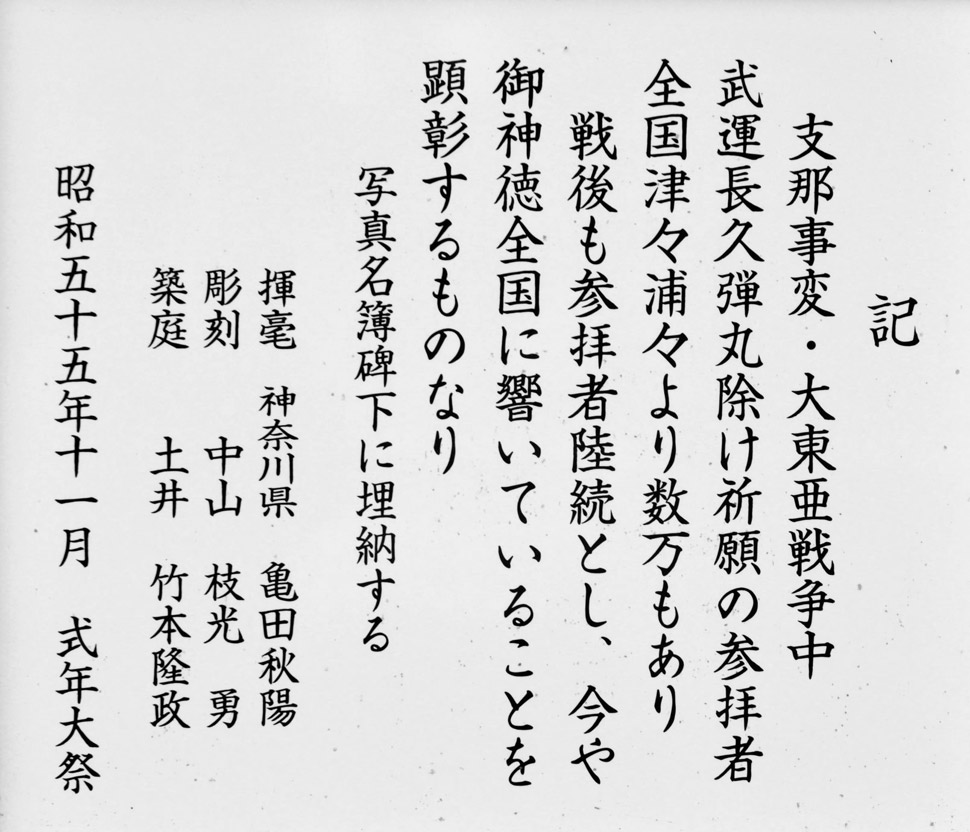 記
支那事変・大東亜戦争中
武運長久弾丸除け祈願の参拝者
全国津々浦々より数万もあり
戦後も参拝者陸続とし、今や
御神徳全国に響いていることを
顕彰するものなり
写真名簿碑下に埋納する
揮毫 神奈川県 亀田秋陽
彫刻 中山 枝光 勇
築庭 土井 竹本隆政
昭和五十五年十一月 式年大祭